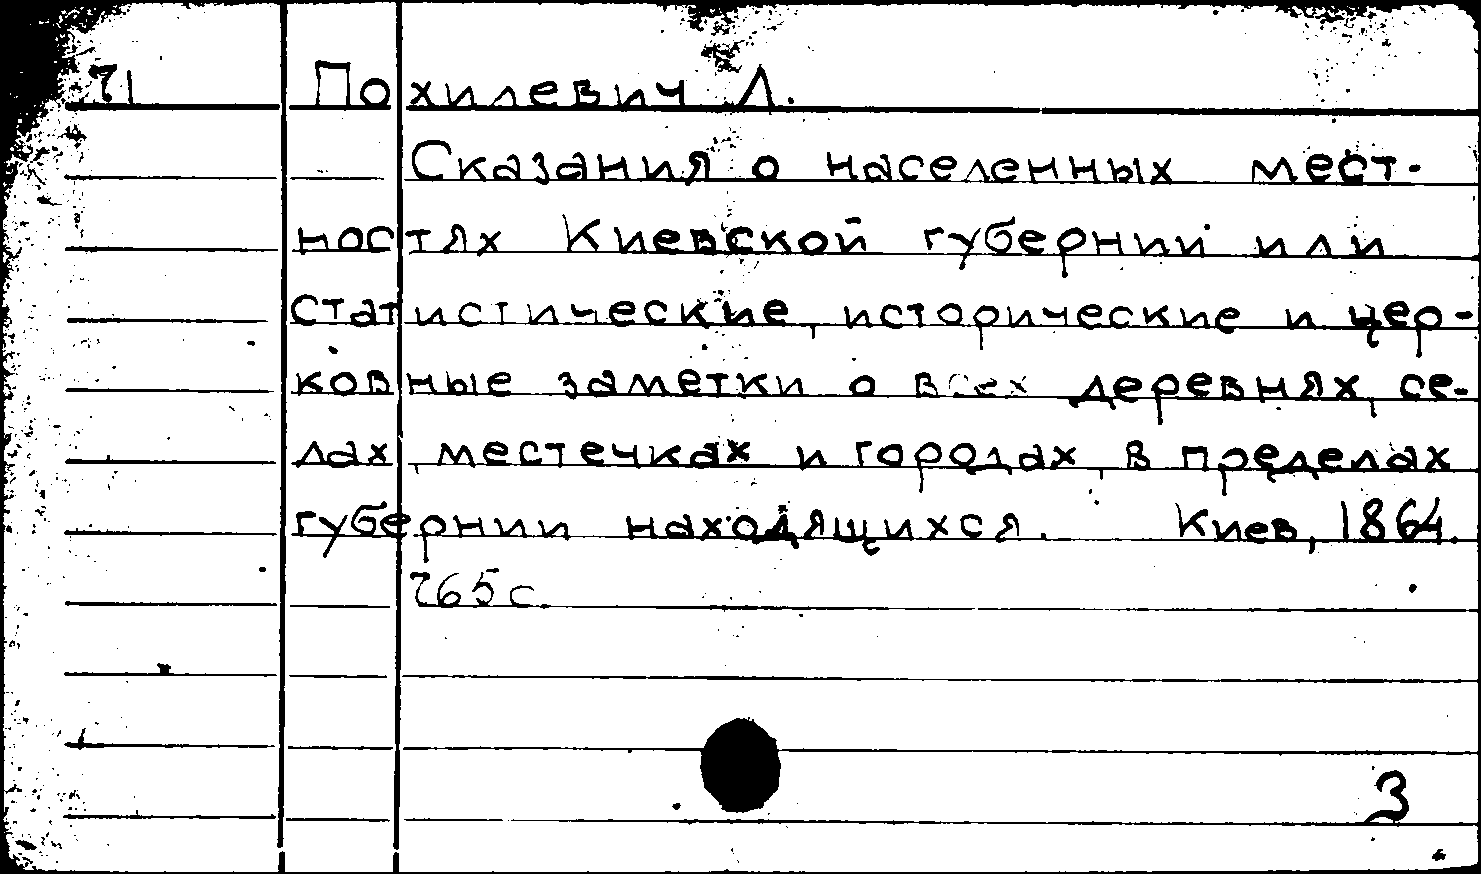 71 Похилевич Л.
Сказания о населенных мест-
ностях Киевской губернии или
статистические, исторические и цер-
ковные заметки о всех деревнях, се-
лах, местечках и городах, в пределах
губернии находящихся. Киев, 1864.
765 с.
3